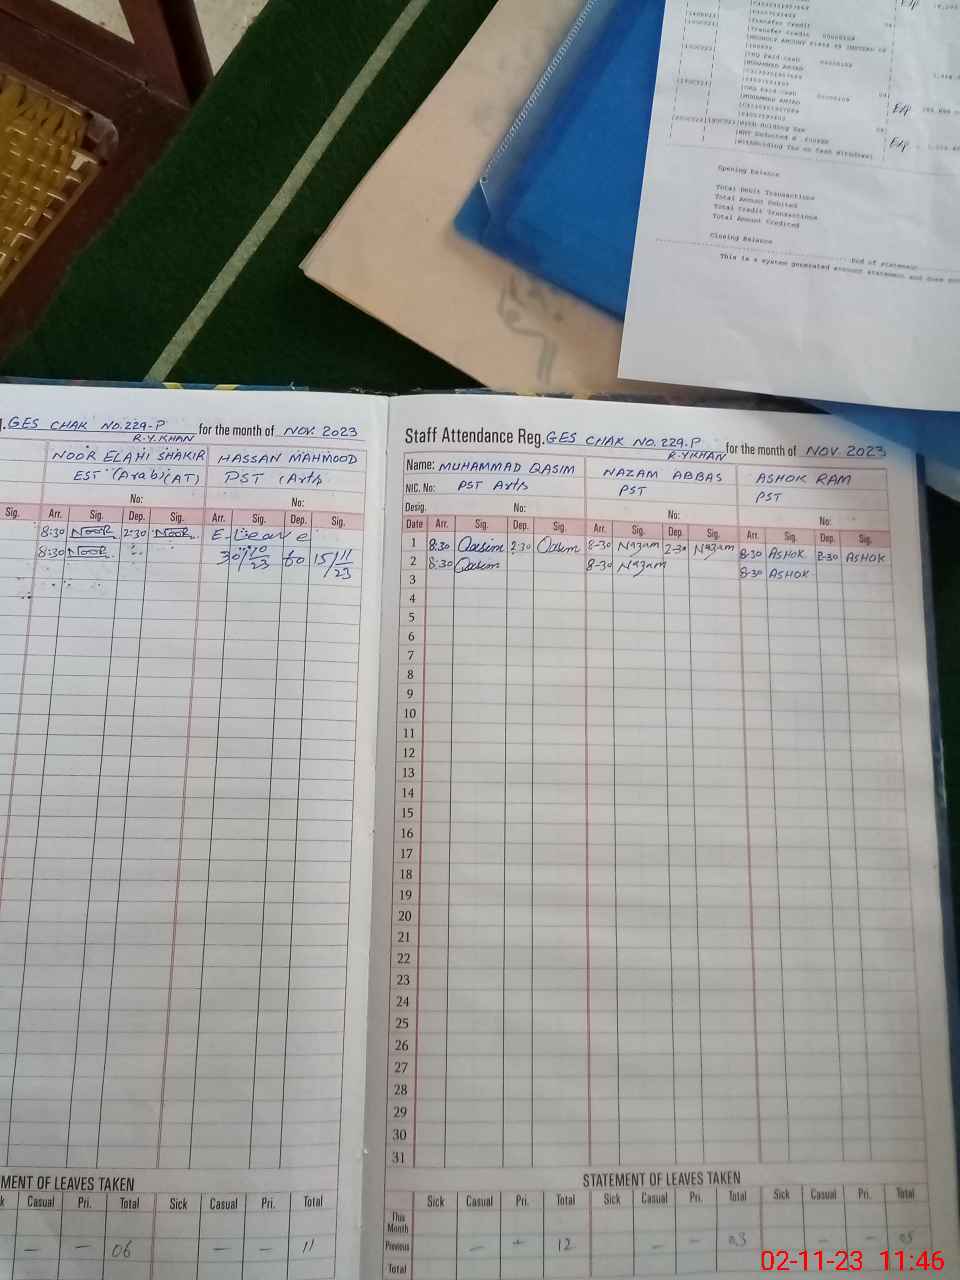 Transfer Credit
Transfer Credit
MUHAMMAD AMJAD
MUHAMMAD AMJAD
With Holding Tax
Withholding Tax on Cash Withdrawal
Exp
Exp
Exp
Opening Balance
Total Debit Transactions
Total Amount Debited
Total Credit Transactions
Total Amount Credited
Closing Balance
End of Statement
This is a system generated account statement and does not
GES CHAK NO.229-P for the month of NOV. 2023
R.Y.KHAN
NOOR ELAHI SHAKIR HASSAN MAHMOOD
EST (Arabi)(AT) PST (Arts
No: No:
Sig. Arr. Sig. Dep. Sig. Arr. Sig. Dep. Sig.
8:30 NOOR 2:30 NOOR E-Leave
8:30 NOOR 30/10/23 to 15/11/23
MENT OF LEAVES TAKEN
k Casual Pri. Total Sick Casual Pri. Total
— — 06 — — 11
Staff Attendance Reg. GES CHAK NO. 229.P for the month of NOV. 2023
R.YKHAN
Name: MUHAMMAD QASIM NAZAM ABBAS ASHOK RAM
NIC. No: PST Arts PST PST
Desig. No: No: No:
Date Arr. Sig. Dep. Sig. Arr. Sig. Dep. Sig. Arr. Sig. Dep. Sig.
1 8:30 Qasim 2:30 Qasim 8-30 Nazam 2-30 Nazam 8-30 ASHOK 2-30 ASHOK
2 8:30 Qasim 8-30 Nazam 8-30 ASHOK
3
4
5
6
7
8
9
10
11
12
13
14
15
16
17
18
19
20
21
22
23
24
25
26
27
28
29
30
31
STATEMENT OF LEAVES TAKEN
Sick Casual Pri. Total Sick Casual Pri. Total Sick Casual Pri. Total
This Month
Previous — — 12 — — 03 — — 05
Total
02-11-23 11:46